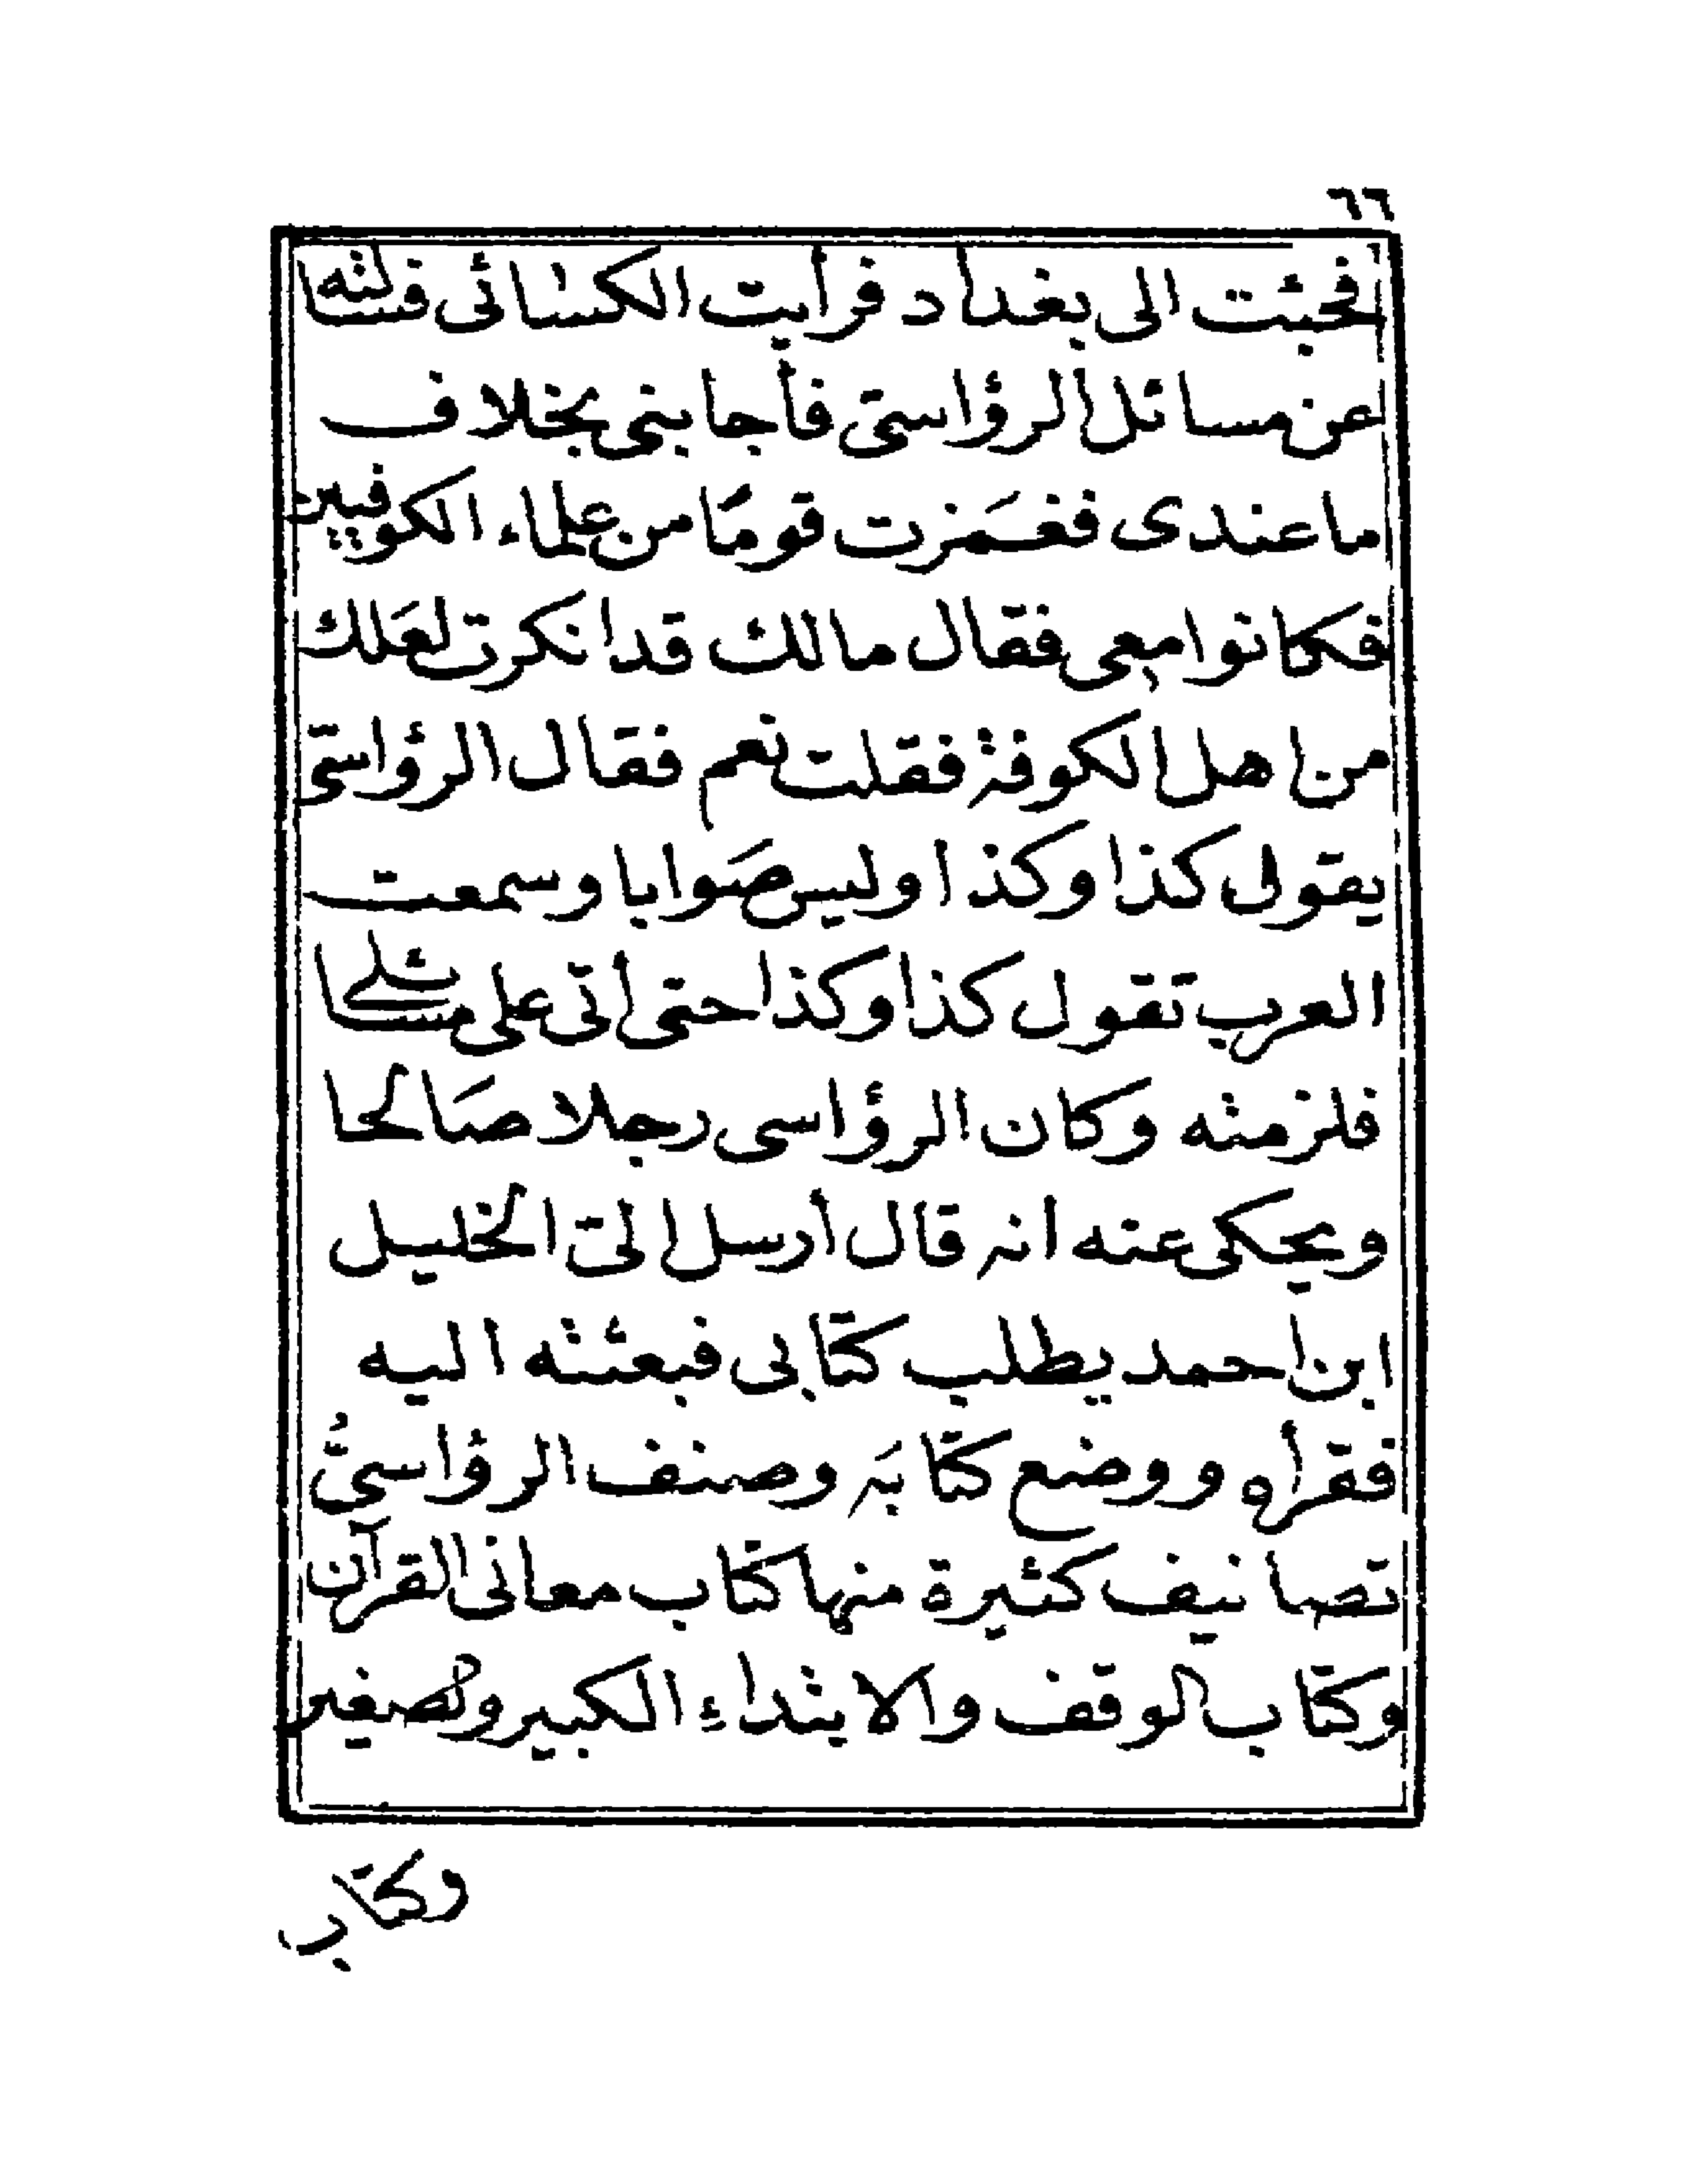 ٦٦
فجئت الى بغداد فرأيت الكسائى فسألته
عن مسائل الرؤاسىّ فأجابنى بخلاف
ما عندى فغمَزت قومًا من علماء الكوفيين
فكانوا معى فقال مالك قد انكرت لعَلك
من اهل الكوفة فقلت نعم فقال الرؤاسىّ
يقول كذا وكذا وليس صَوابا وسمعت
العرب تقول كذا وكذا حتى اتى على مسائلى
فلزمته وكان الرؤاسى رجلا صَالحا
ويحكى عنه انه قال أرسل الىّ الخليل
ابن احمد يطلب كتابى فبعثته اليه
فقرأه ووضع كتابَه وصنف الرؤاسىُّ
تصانيف كثيرة منها كتاب معانى القرآن
وكتاب الوقف والابتداءِ الكبير والصغير
وكتاب